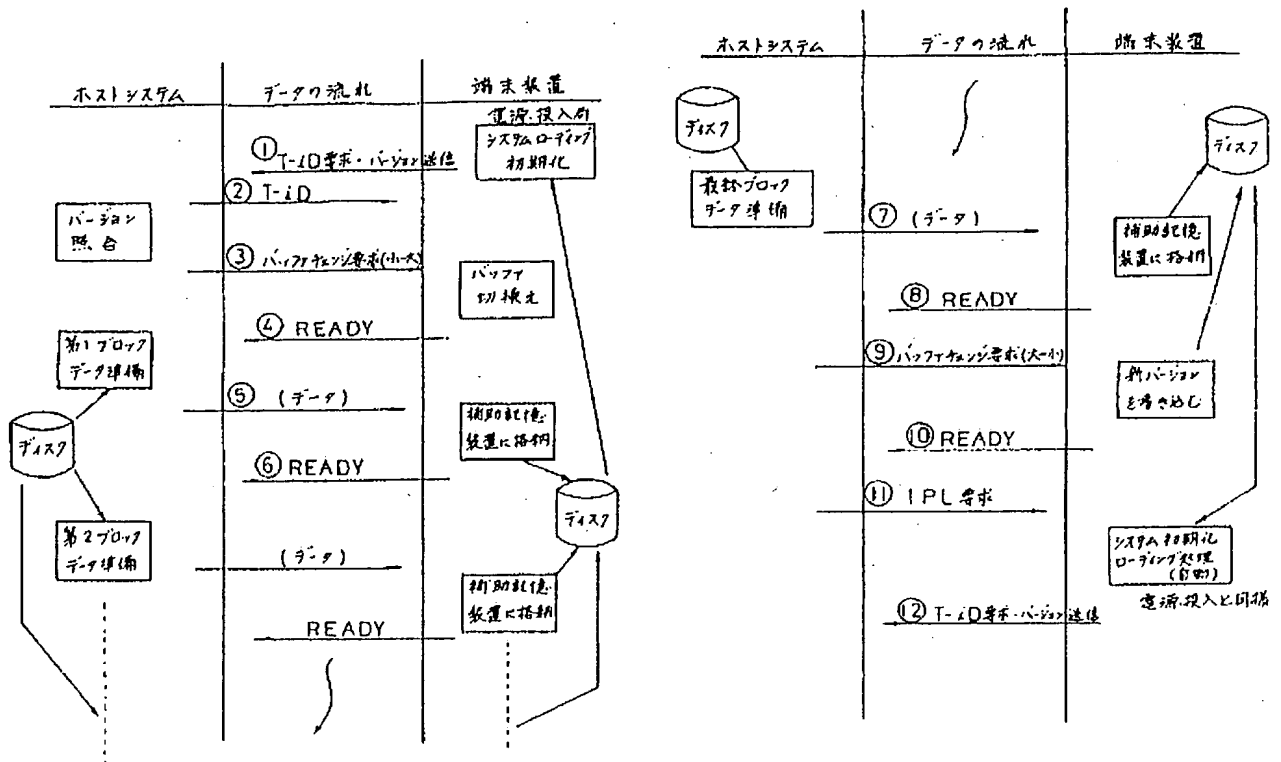 ホストシステム
データの流れ
端末装置
電源投入前
システムローディング
初期化
① T-iD要求・バージョン送信
② T-iD
バージョン
照合
③ バッファチェンジ要求(小→大)
バッファ
切換え
④ READY
第1ブロック
データ準備
⑤ (データ)
補助記憶
装置に格納
ディスク
⑥ READY
ディスク
第2ブロック
データ準備
(データ)
補助記憶
装置に格納
READY
ホストシステム
データの流れ
端末装置
ディスク
ディスク
最終ブロック
データ準備
⑦ (データ)
補助記憶
装置に格納
⑧ READY
⑨ バッファチェンジ要求(大→小)
新バージョン
を書き込む
⑩ READY
⑪ IPL要求
システム初期化
ローディング処理
電源投入と同様
⑫ T-iD要求・バージョン送信